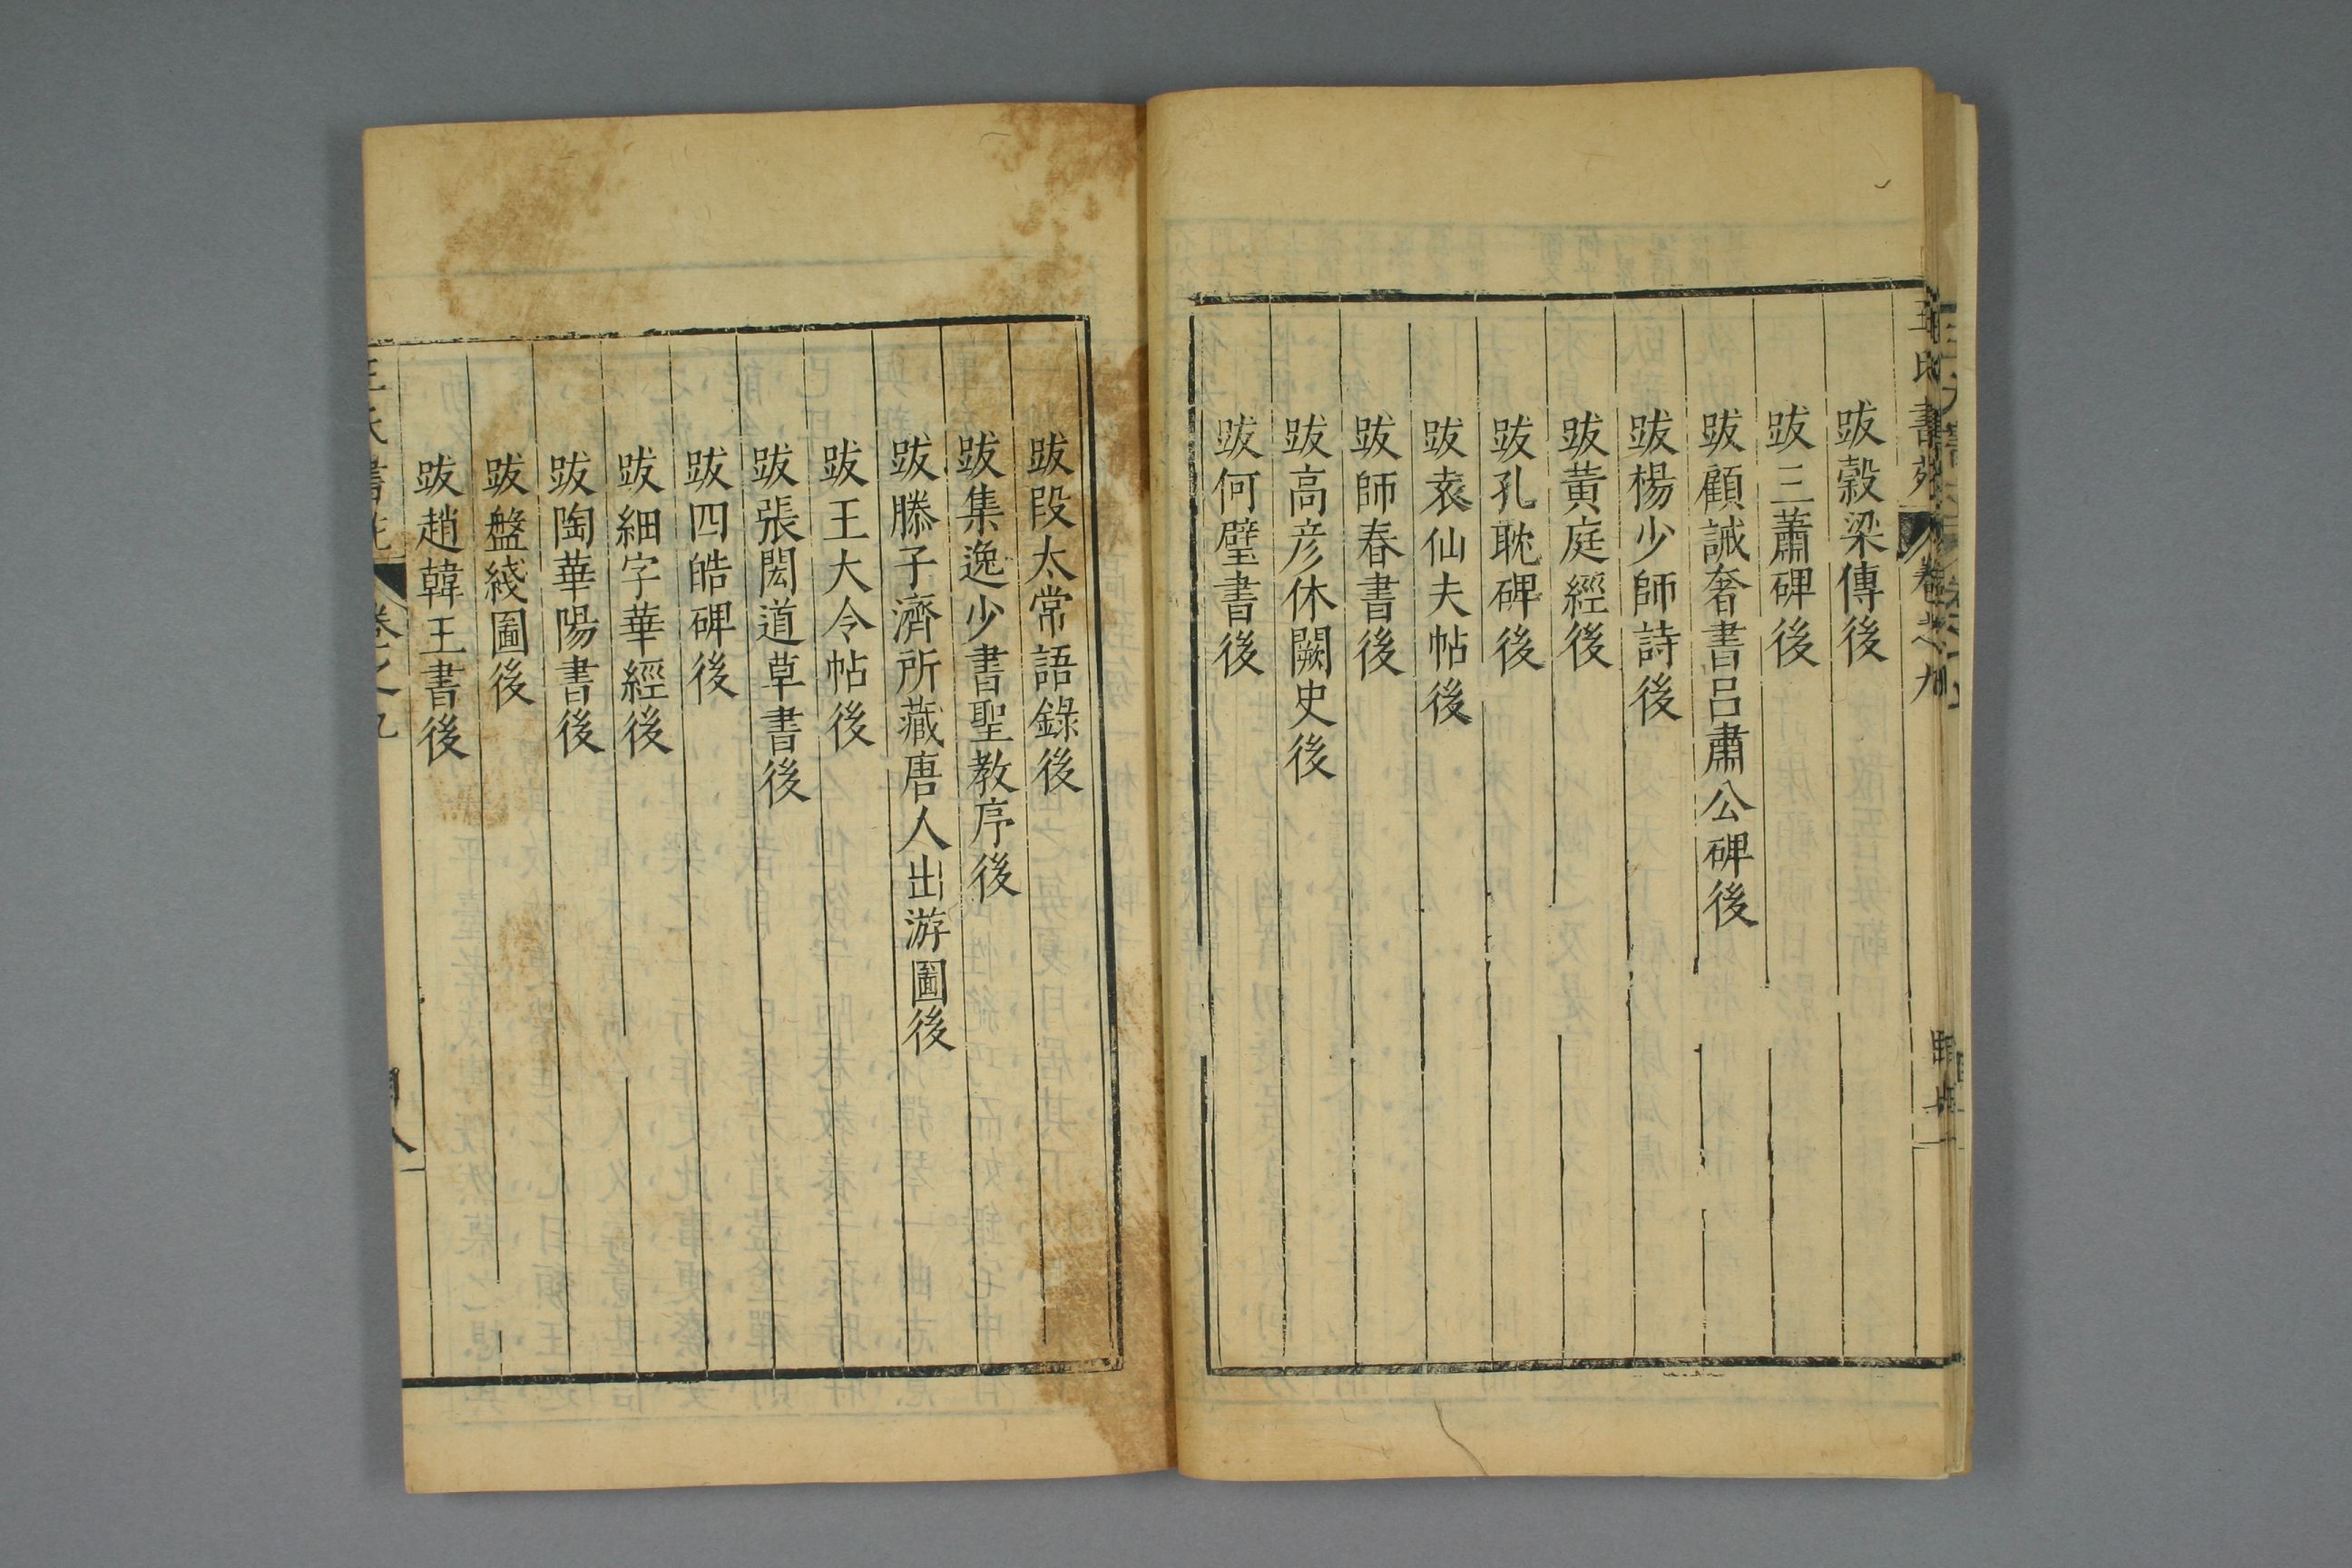 跋穀梁傳後
跋三蕭碑後
跋顧誡奢書呂肅公碑後
跋楊少師詩後
跋黃庭經後
跋孔耽碑後
跋袁仙夫帖後
跋師春書後
跋高彥休闕史後
跋何璧書後
跋段太常語錄後
跋集逸少書聖教序後
跋滕子濟所藏唐人出游圖後
跋王大令帖後
跋張閎道草書後
跋四皓碑後
跋細字華經後
跋陶華陽書後
跋盤綫圖後
跋趙韓王書後
王氏書苑 卷之九